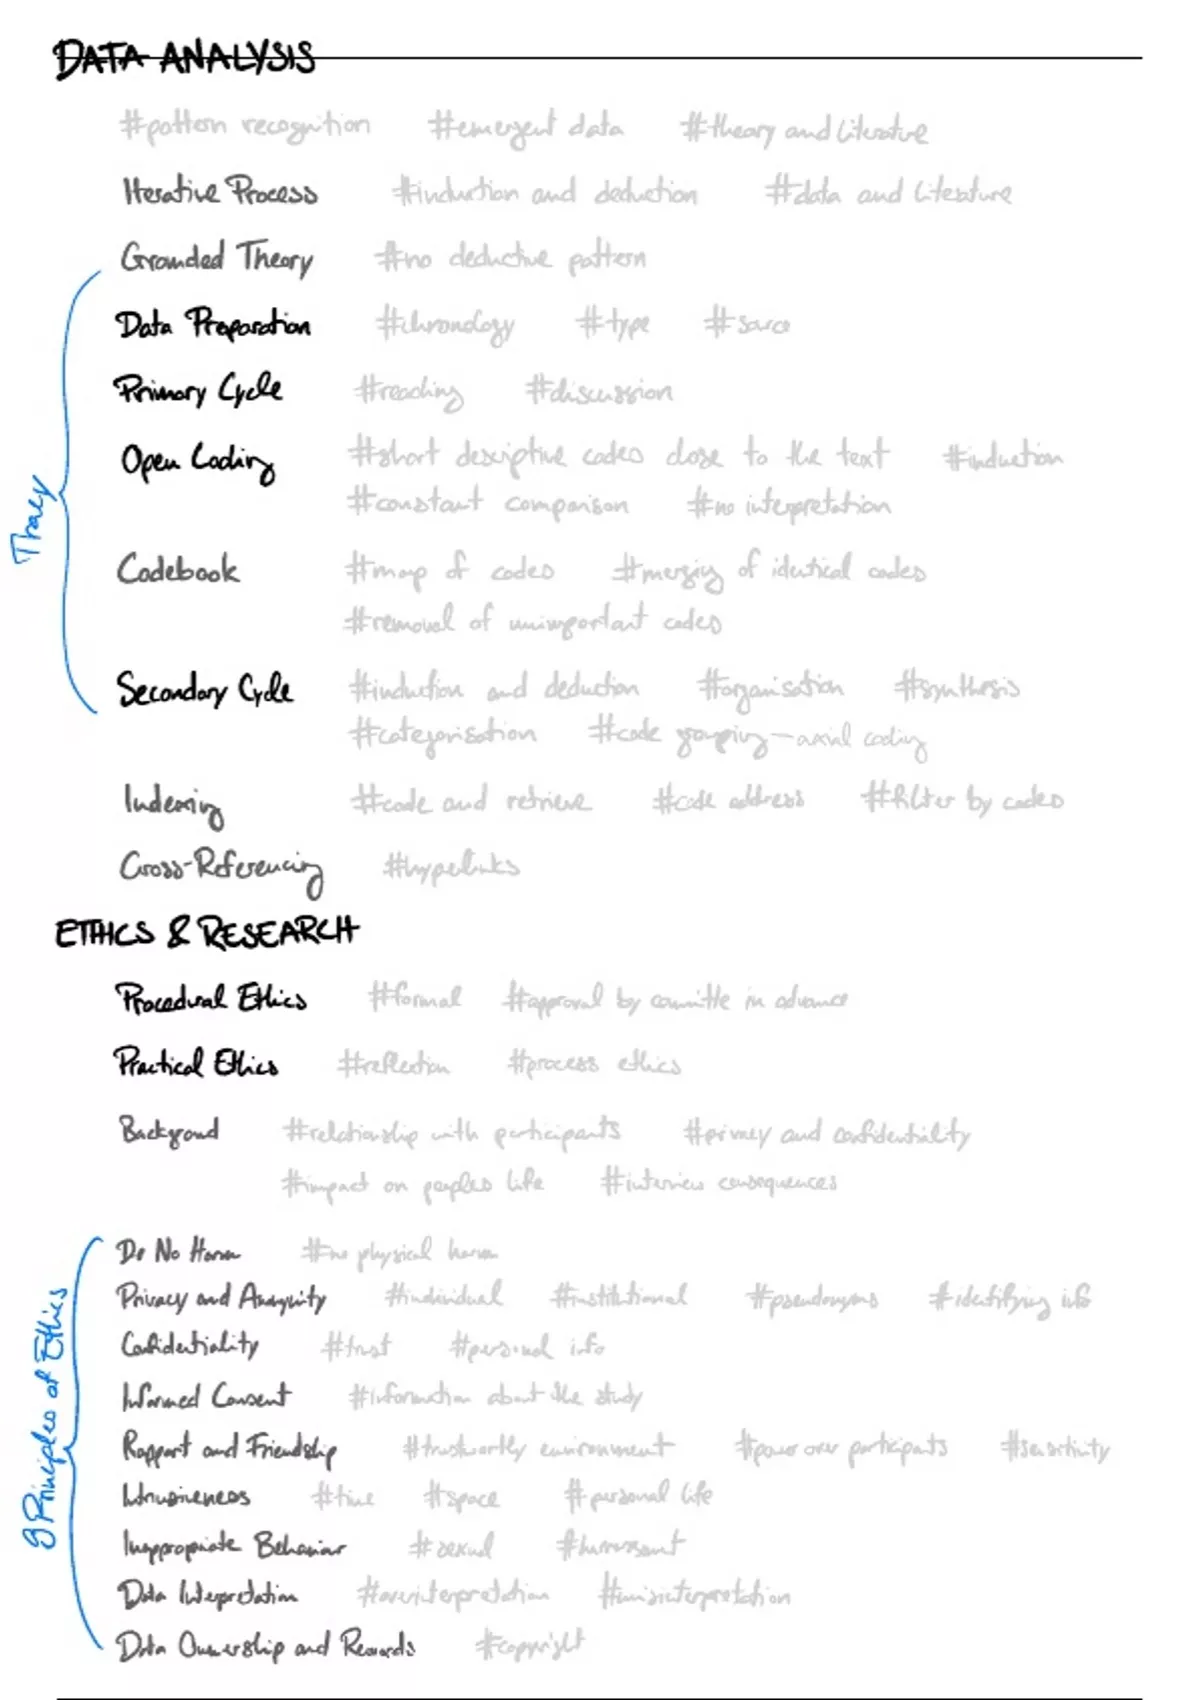 DATA ANALYSIS
#pattern recognition #emergent data #theory and literature
Iterative Process #induction and deduction #data and literature
Grounded Theory #no deductive pattern
Data Preparation #chronology #type #source
Primary Cycle #reading #discussion
Open Coding #short descriptive codes close to the text #induction
#constant comparison #no interpretation
Tracy
Codebook #map of codes #merging of identical codes
#removal of unimportant codes
Secondary Cycle #induction and deduction #organisation #synthesis
#categorisation #code grouping - axial coding
Indexing #code and retrieve #code address #filter by codes
Cross-Referencing #hyperlinks
ETHICS & RESEARCH
Procedural Ethics #formal #approval by committe in advance
Practical Ethics #reflection #process ethics
Background #relationship with participants #privacy and confidentiality
#impact on peoples life #interview consequences
9 Principles of Ethics
Do No Harm #no physical harm
Privacy and Anonymity #individual #institutional #pseudonyms #identifying info
Confidentiality #trust #personal info
Informed Consent #information about the study
Rapport and Friendship #trustworthy environment #power over participants #sensitivity
Intrusiveness #time #space #personal life
Inappropriate Behaviour #sexual #harassment
Data Interpretation #overinterpretation #misinterpretation
Data Ownership and Rewards #copyright